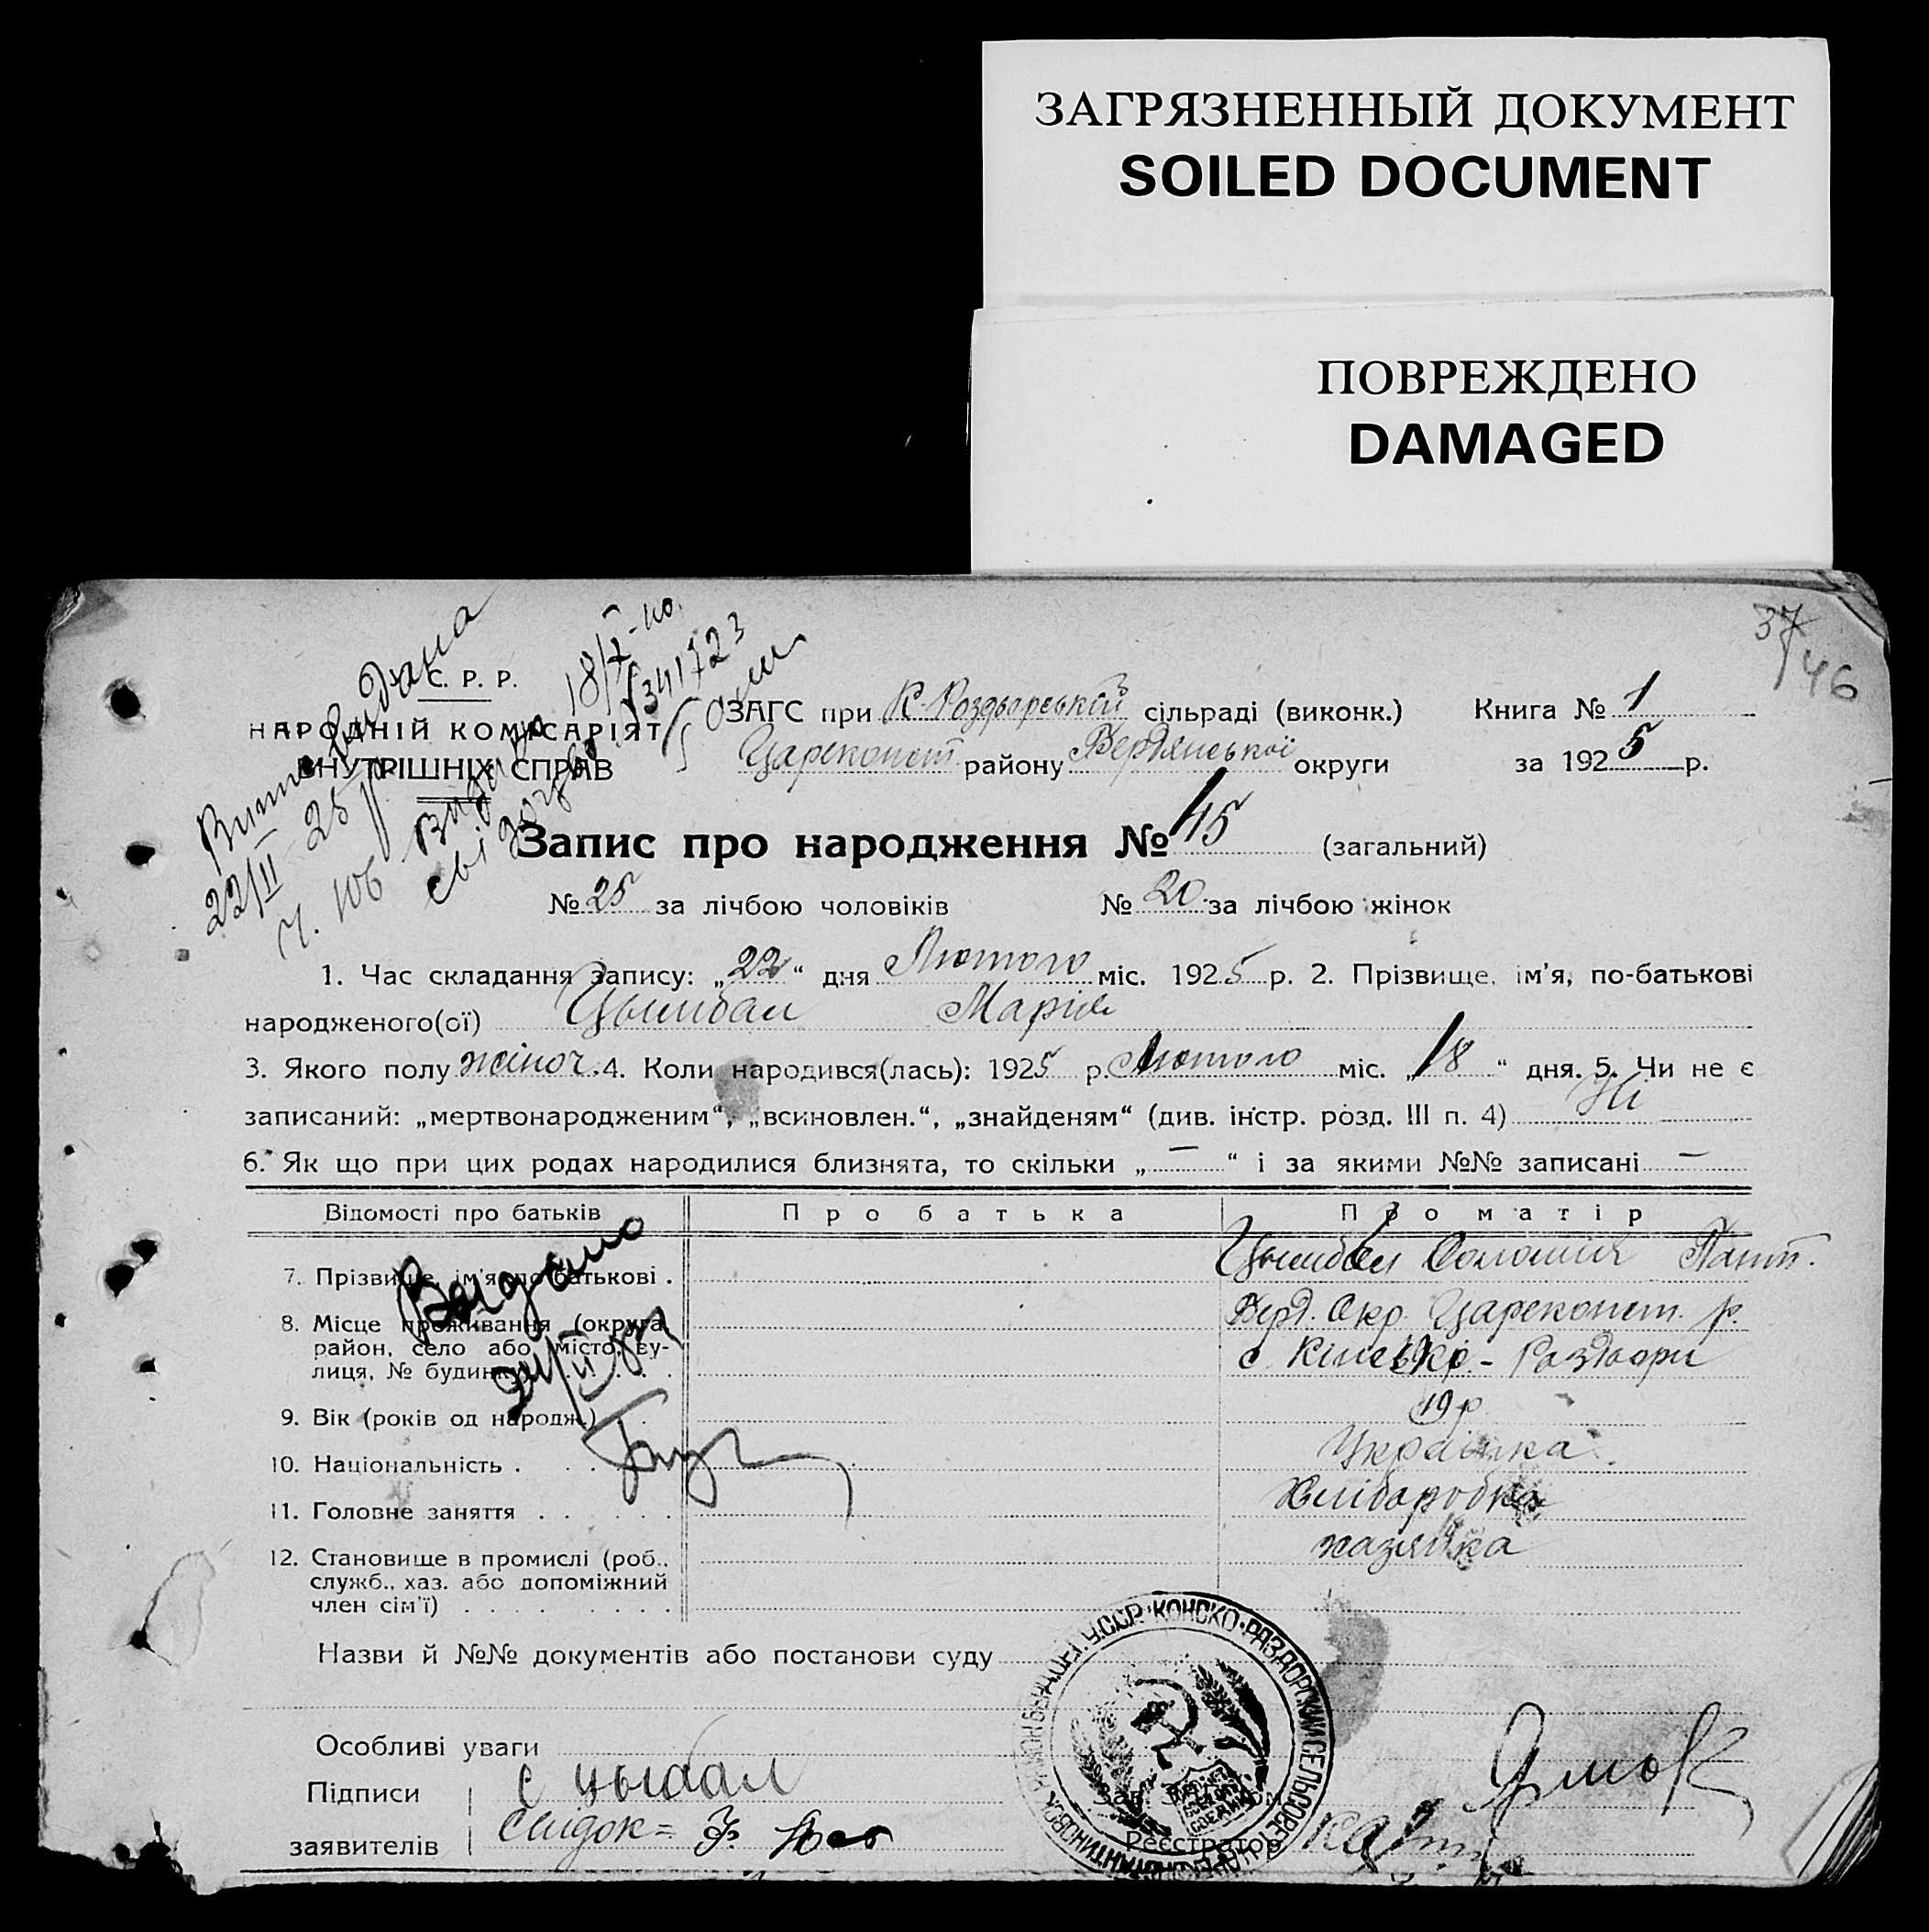 ЗАГРЯЗНЕННЫЙ ДОКУМЕНТ
SOILED DOCUMENT
ПОВРЕЖДЕНО
DAMAGED
37
46
С. Р. Р.
НАРОДНІЙ КОМІСАРІЯТ
ВНУТРІШНІХ СПРАВ
22/II 25 р
18/X-40
341723
ЗАГС при К-Роздорській сільраді (виконк.) Книга № 1
Цареконст. району Бердянської округи за 1925 р.
Запис про народження № 45 (загальний)
№ 25 за лічбою чоловіків № 20 за лічбою жінок
1. Час складання запису: „22“ дня Лютого міс. 1925 р. 2. Прізвище, ім'я, по-батькові
народженого(ої) Цымбал Марія
3. Якого полу жіноч. 4. Коли народився(лась): 1925 р. Лютого міс. „18“ дня. 5. Чи не є
записаний: „мертвонародженим“, „всиновлен.“, „знайденям“ (див. інстр. розд. III п. 4) Ні
6. Як що при цих родах народилися близнята, то скільки „—“ і за якими №№ записані —
Відомості про батьків Про батька Про матір
7. Прізвище, ім'я, по батькові . Цымбал Соломія Пант.
8. Місце проживання (округа, Берд. Окр. Цареконст. р.
район, село або місто, ву-
лиця, № будинку) с. Кінські-Роздори
Видано
9. Вік (років од народж.) 19 р
10. Національність . Українка
11. Головне заняття . . . . . Хліборобка
12. Становище в промислі (роб., хазяйка
служб., хаз. або допоміжний
член сім'ї) . . . . . . .
Назви й №№ документів або постанови суду
У.С.С.Р. КОНСКО-РАЗДОРСКИЙ СЕЛЬСОВЕТ
Особливі уваги
Підписи С Цыбал
заявителів Свідок =
Реєстратор